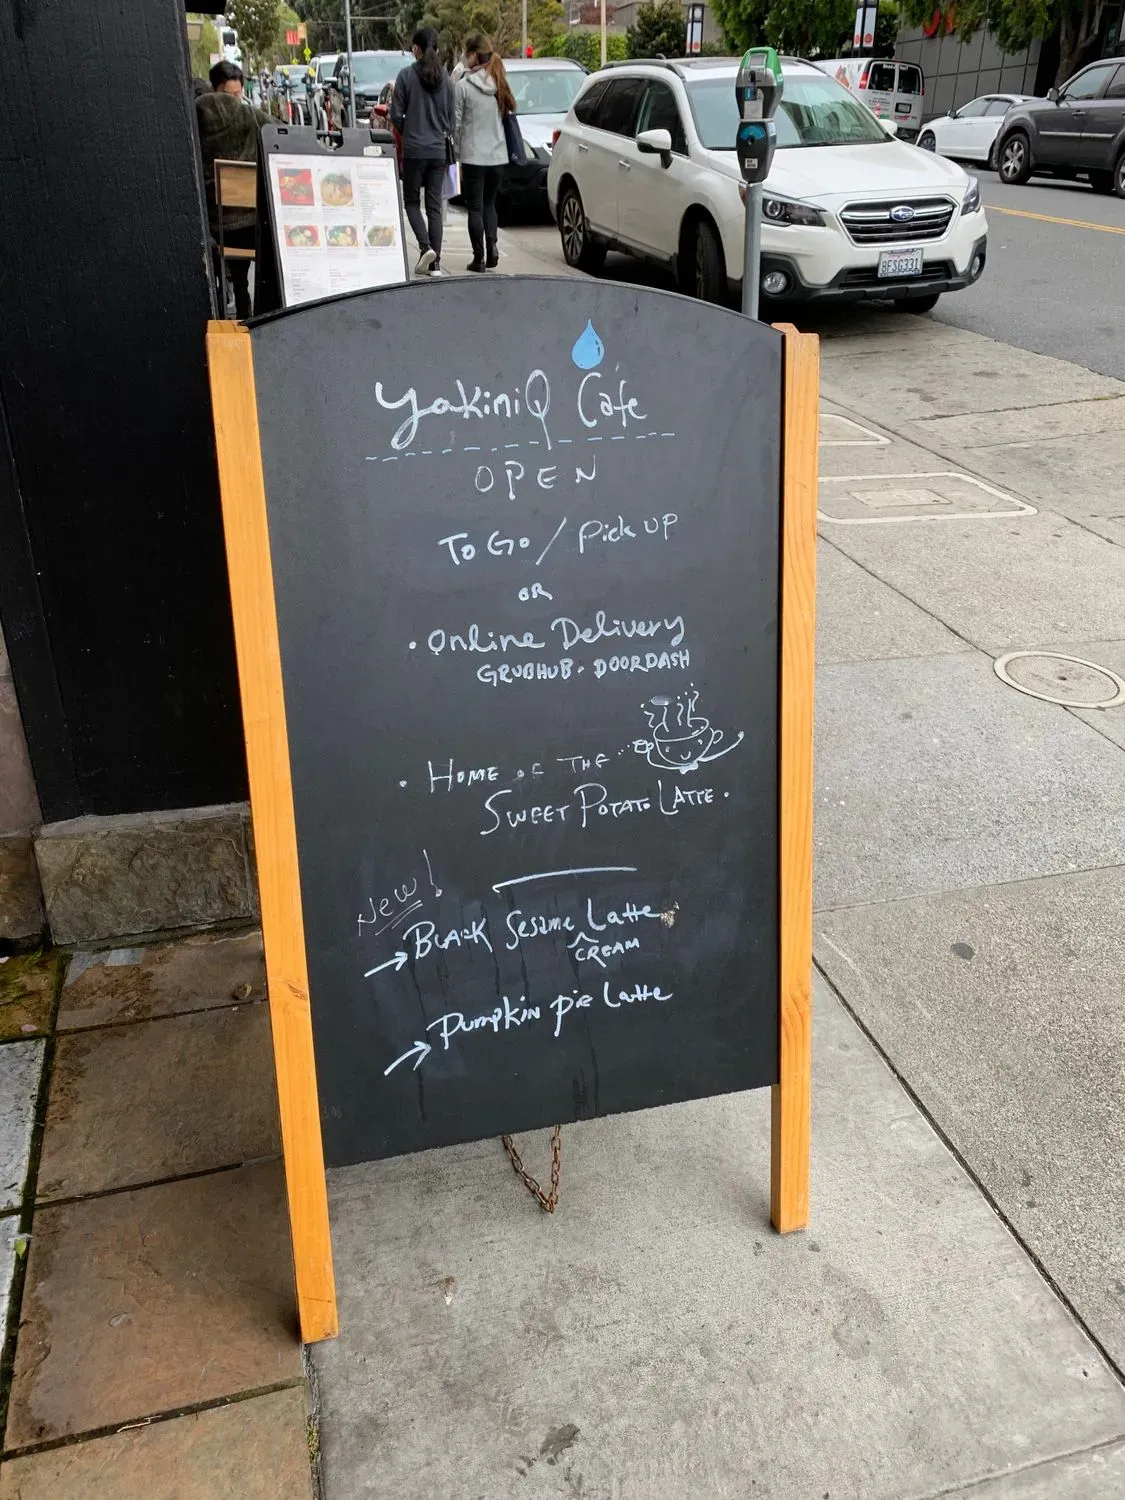 YakiniQ Cafe
OPEN
To Go / Pick up
OR
· Online Delivery
GRUBHUB · DOORDASH
· HOME OF THE
SWEET POTATO LATTE ·
New!
→ BLACK Sesame Latte
^ CREAM
→ Pumpkin pie Latte
8FSG331